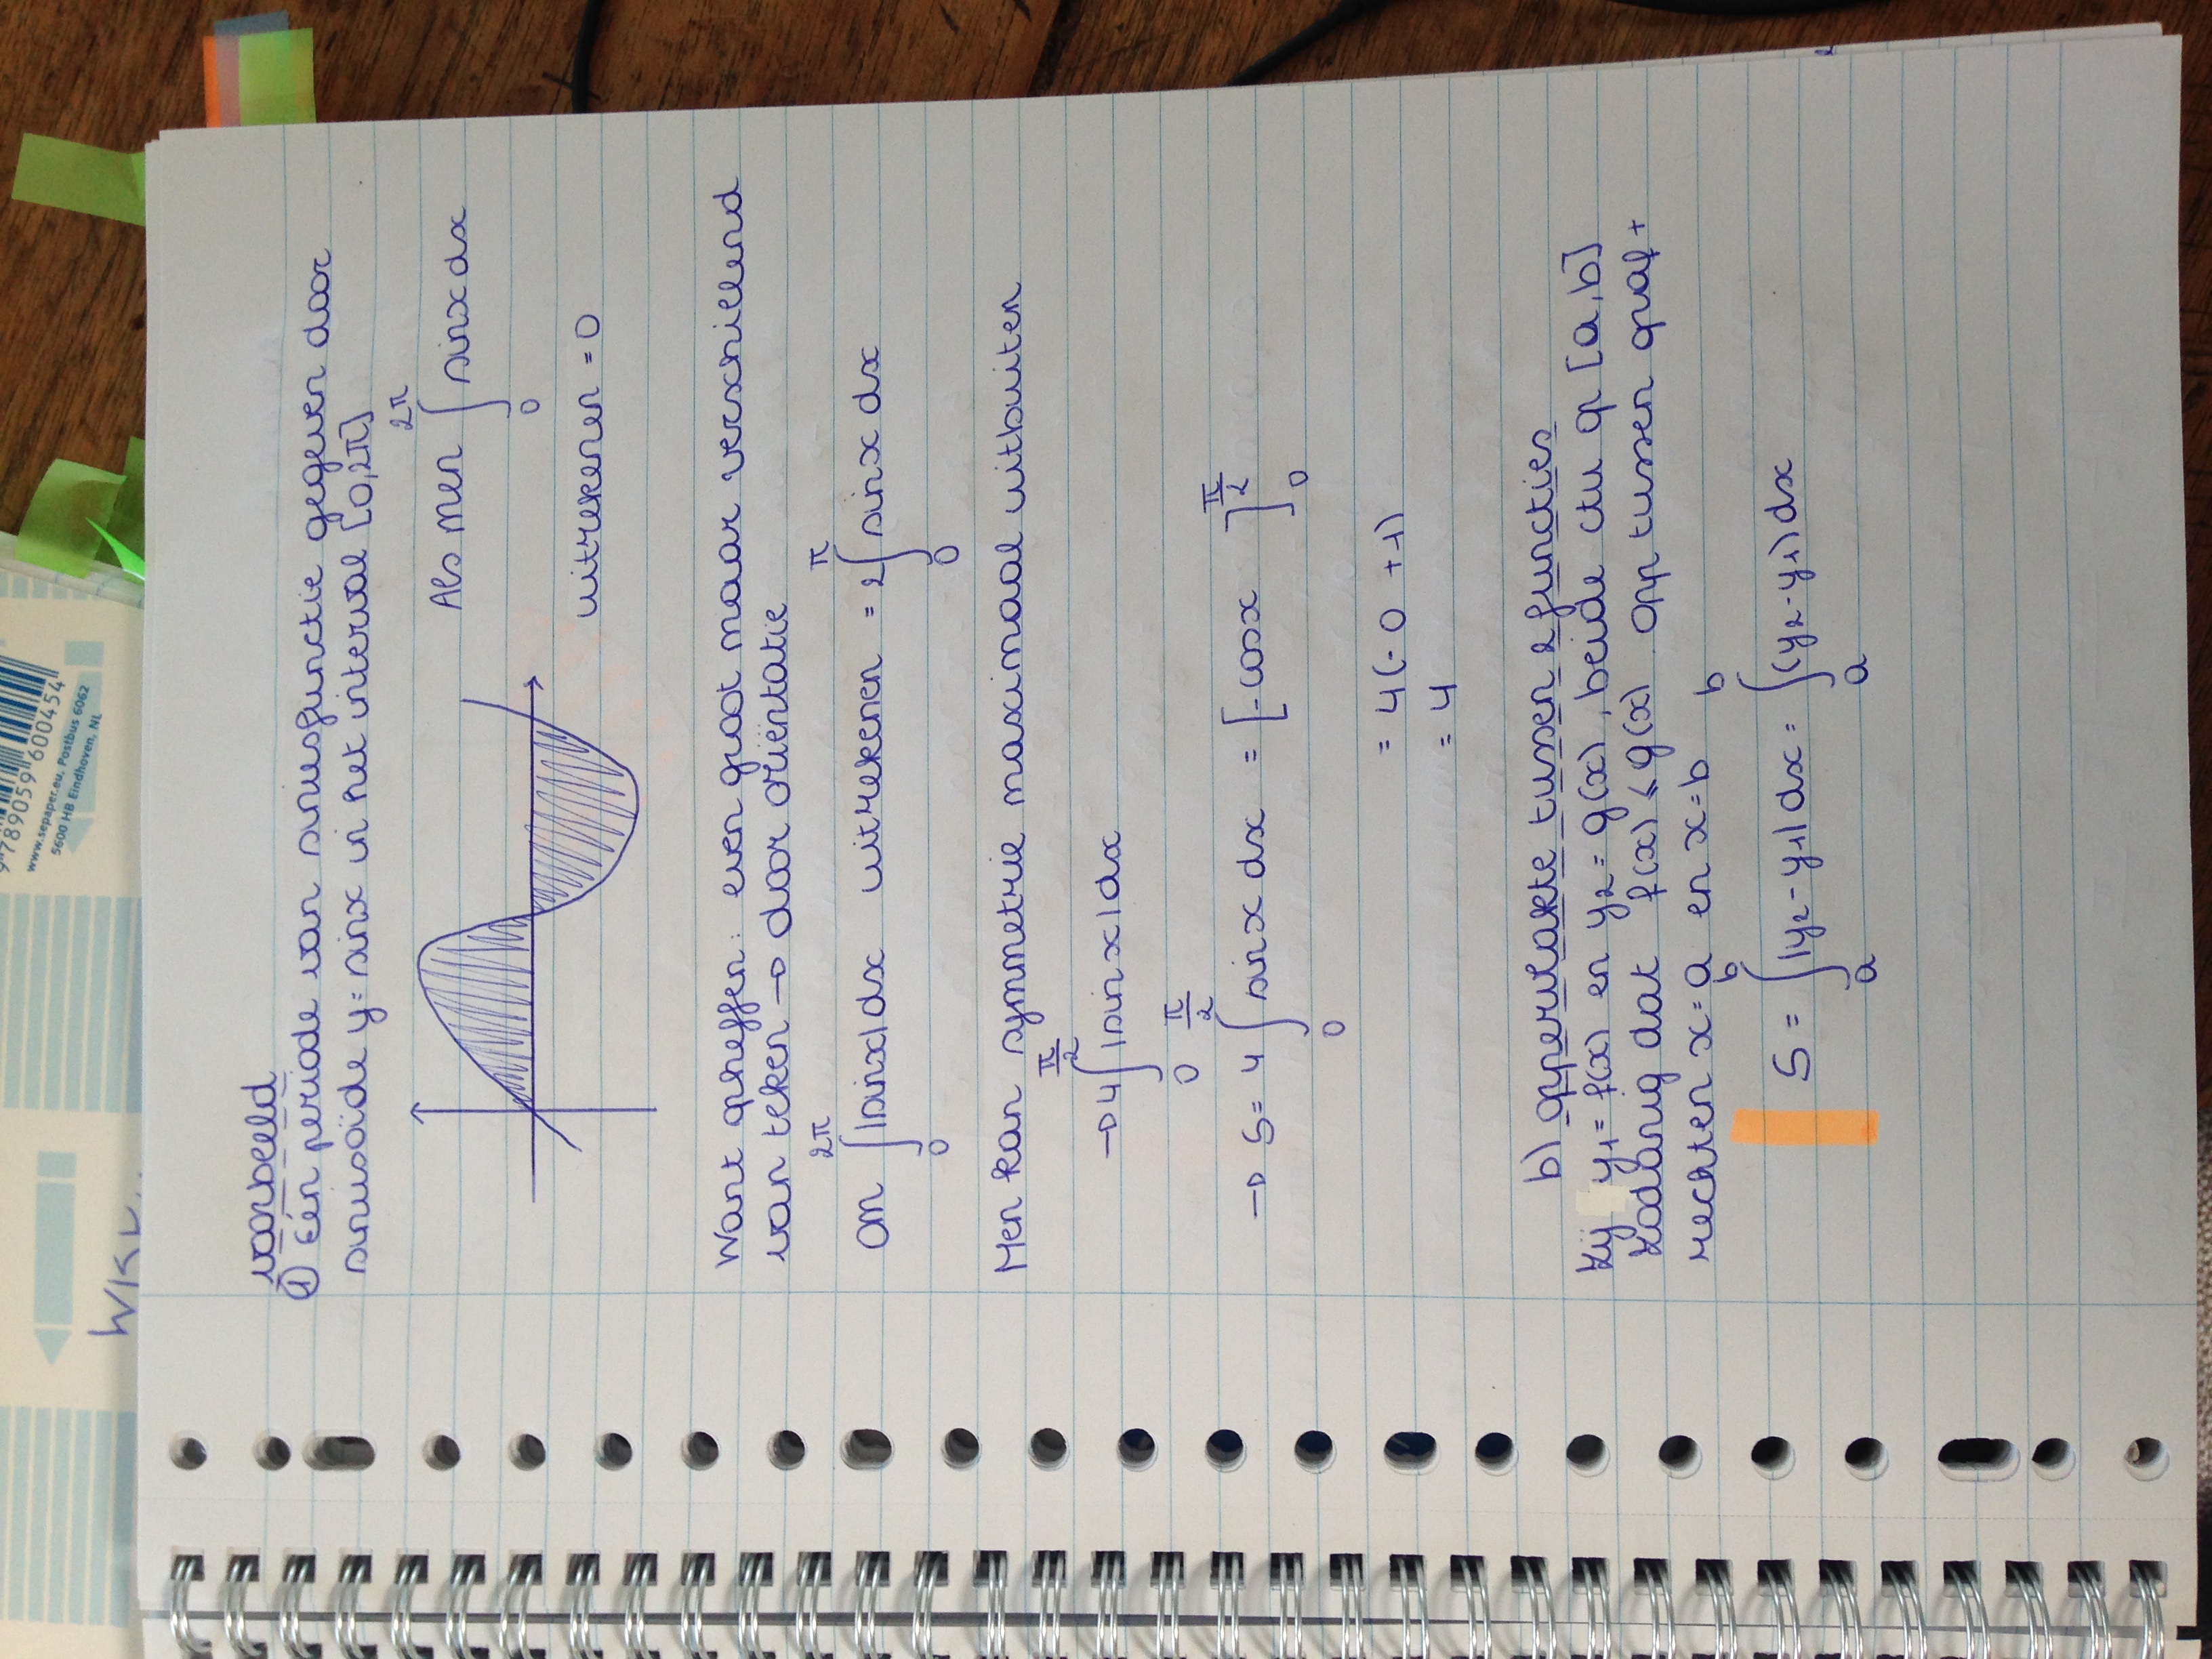 9789059600454
www.sepaper.eu, Postbus 6062
5600 HB Eindhoven, NL
voorbeeld
① Eén periode van sinusfunctie gegeven door
sinusoïde y= sinx in het interval [0,2π]
Als men ∫₀^2π sinx dx
uitrekenen = 0
Want opheffen: even groot maar verschillend
van teken → door oriëntatie
Om ∫₀^2π |sinx| dx uitrekenen = 2∫₀^π sinx dx
Men kan symmetrie maximaal uitbuiten
→ 4∫₀^π/2 |sin x| dx
→ S= 4 ∫₀^π/2 sinx dx = [-cosx ]₀^π/2
= 4(- 0 +1)
= 4
b) oppervlakte tussen 2 functies
Zij y₁= f(x) en y₂= g(x), beide ctu op [a,b]
zodanig dat f(x) ⩽ g(x). Opp tussen graf +
rechten x=a en x=b
S = ∫ₐ^b |y₂-y₁| dx = ∫ₐ^b (y₂-y₁) dx